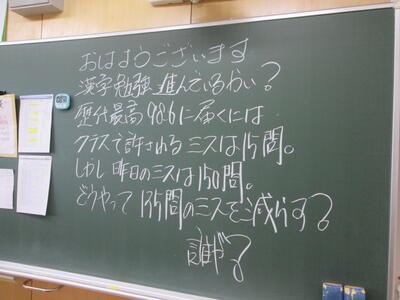 おはようございます
漢字勉強進んでいるかい?
歴代最高98.6に届くには
クラスで許されるミスは15問。
しかし昨日のミスは150問。
どうやって135問のミスを減らす?
誰が?